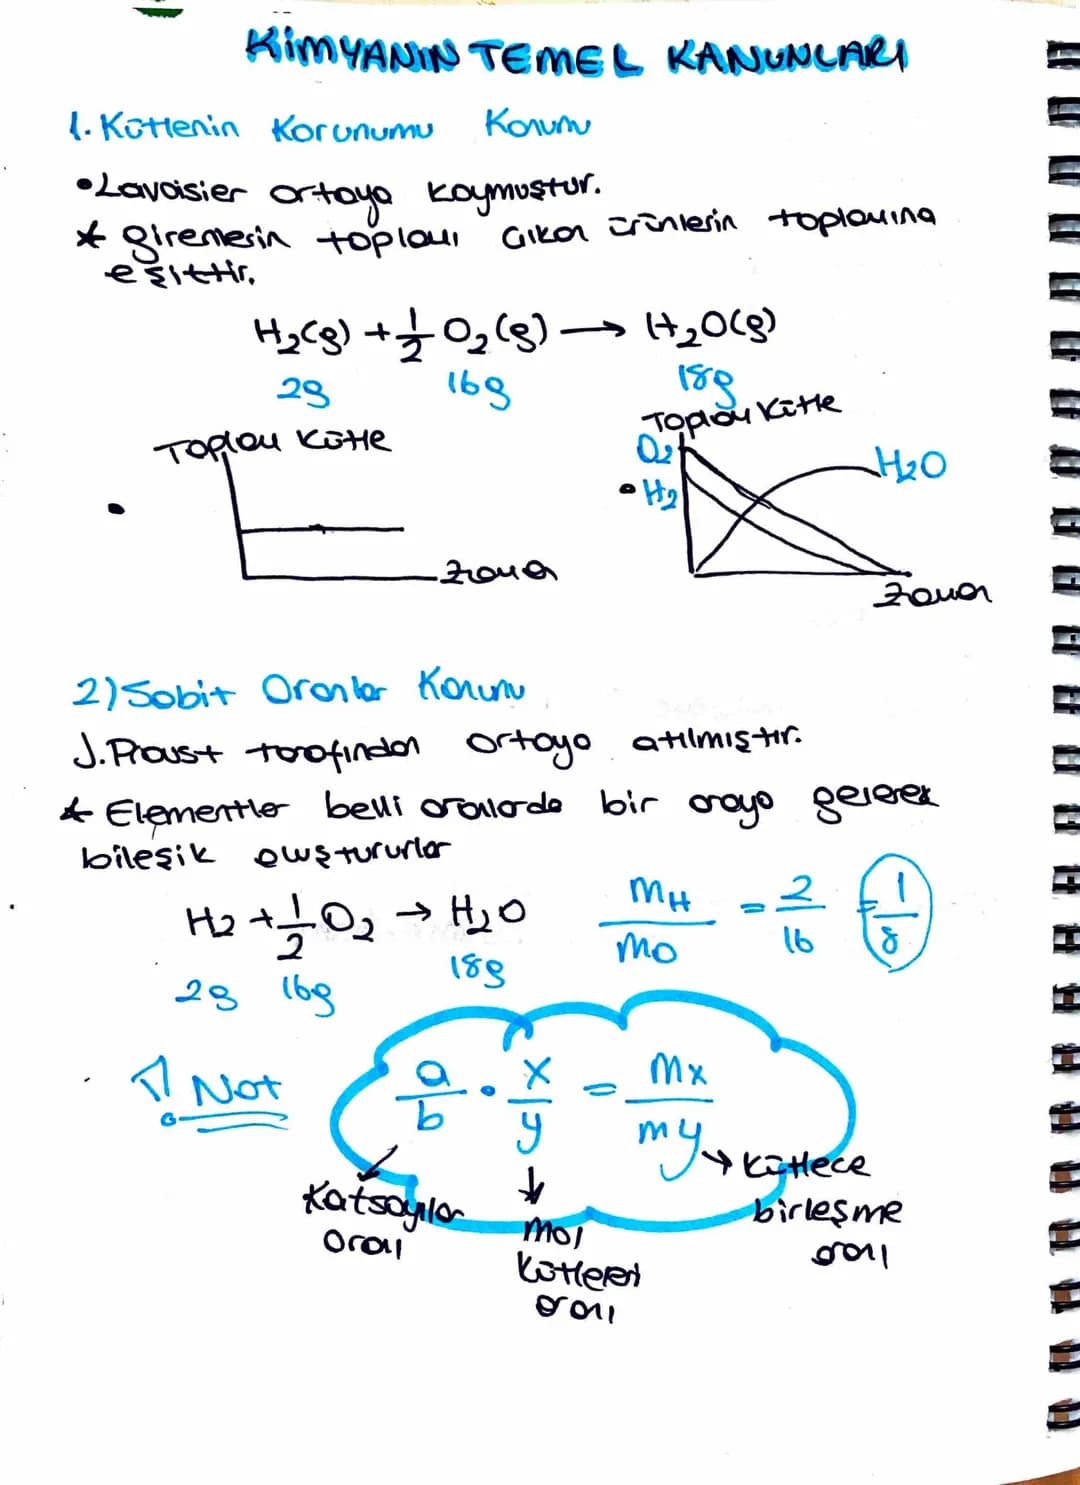 KİMYANIN TEMEL KANUNLARI
1. Kütlenin Korunumu Kanunu
• Lavoisier ortaya koymuştur.
* girenlerin toplamı Çıkan ürünlerin toplamına
eşittir.
H₂(g) + 1/2 O₂(g) → H₂O(g)
2g 16g 18g
Toplam Kütle
Zaman
Toplam Kütle
O₂
• H₂
H₂O
Zaman
2) Sabit Oranlar Kanunu
J. Proust tarafından ortaya atılmıştır.
* Elementler belli oranlarda bir araya gelerek
bileşik oluştururlar
H₂ + 1/2 O₂ → H₂O
2g 16g 18g
mH/mO = 2/16 = 1/8
Not
a/b · x/y = mx/my
Katsayılar
Oranı
mol
Kütleleri
oranı
→ Kütlece
birleşme
oranı